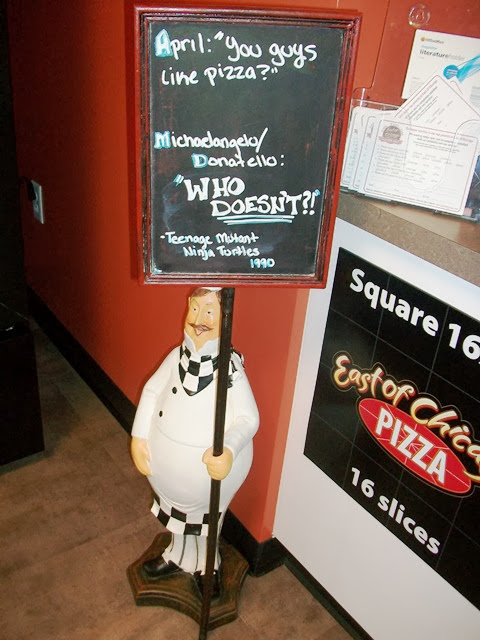 April: "You guys
like pizza?"
Michaelangelo/
Donatello:
"WHO
DOESN'T?!"
-Teenage Mutant
Ninja Turtles
1990
OfficeMax
literatureholder
Square 16
East of Chica
PIZZA
16 slices